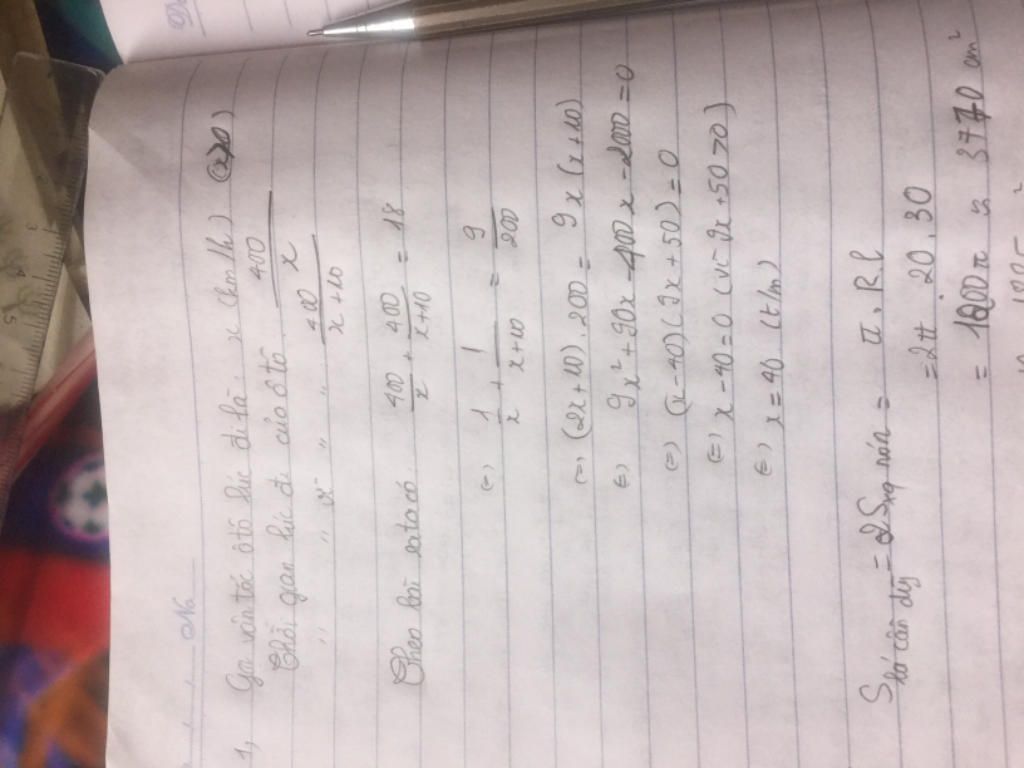 1, Gọi vận tốc ôtô lúc đi là x (km/h) (x>0)
Thời gian lúc đi của ôtô 400/x
" " " về " " " 400/x+10
Theo bài ra ta có 400/x + 400/x+10 = 18
(=) 1/x + 1/x+10 = 9/200
(=) (2x+10).200 = 9x(x+10)
(=) 9x² + 90x - 400x - 2000 = 0
(=) (x-40)(9x+50) = 0
(=) x-40=0 (vì 9x+50>0)
(=) x=40 (t/m)
S lá cần dùng = 2S xq nón = π.R.l
= 2π.20.30
= 1200π ≈ 3770 cm²